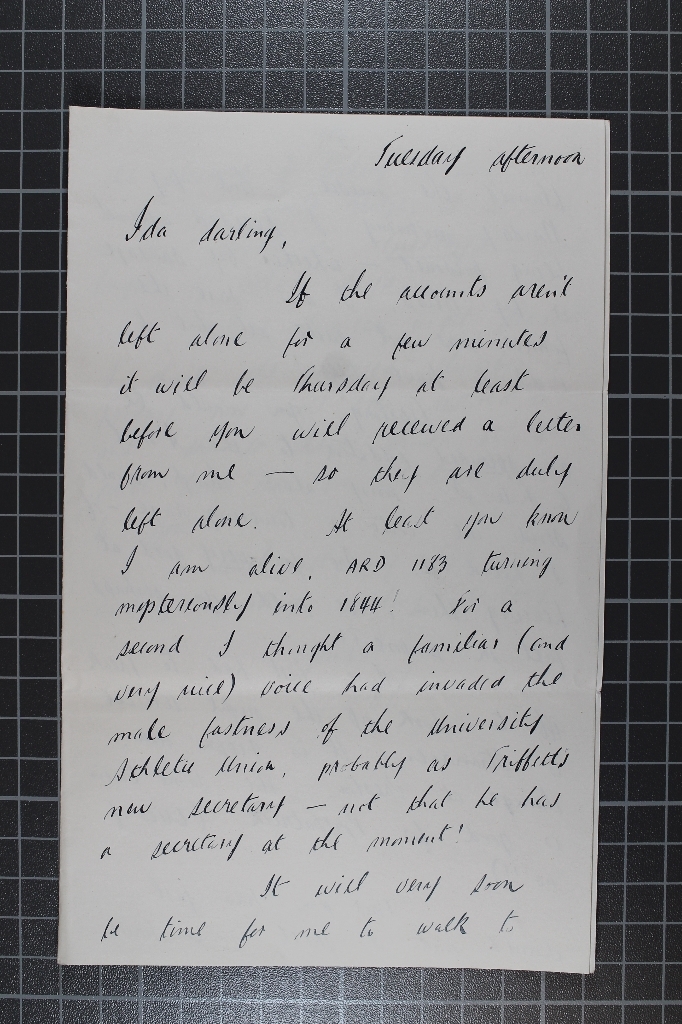 Tuesday afternoon
Ida darling,
If the accounts aren't
left alone for a few minutes
it will be Thursday at least
before you will received a letter
from me — so they are duly
left alone. At least you know
I am alive, ARD 1183 turning
mysteriously into 1844! For a
second I thought a familiar (and
very nice) voice had invaded the
male fastness of the University
Athletic Union, probably as Triffett's
new secretary — not that he has
a secretary at the moment!
It will very soon
be time for me to walk to